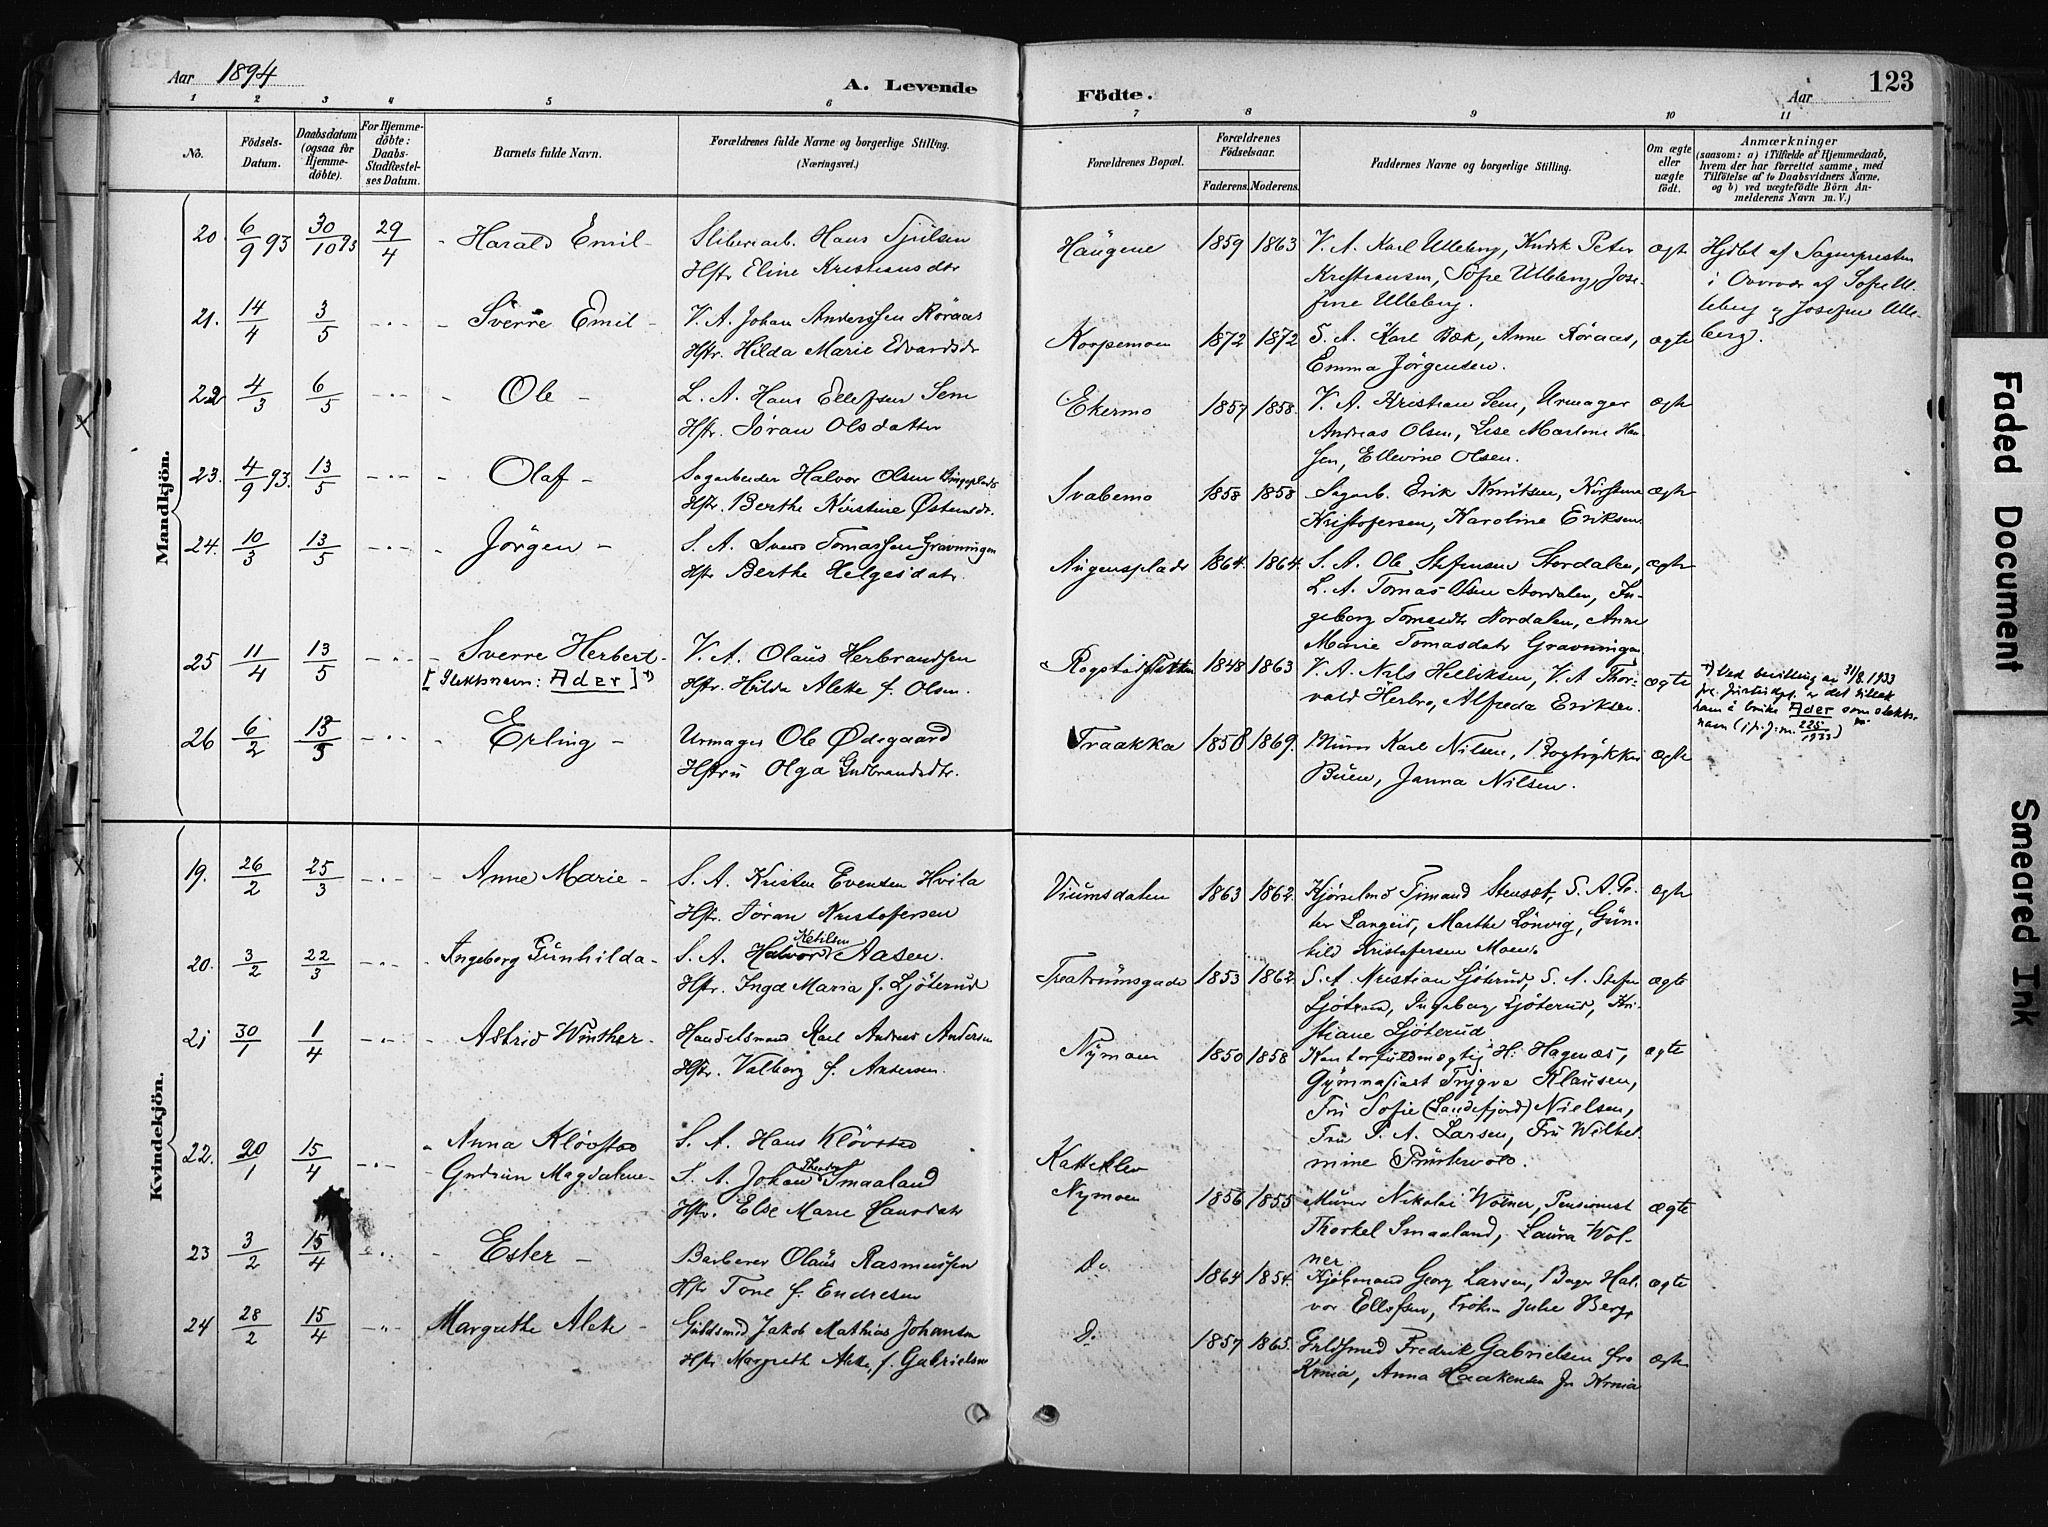 Aar 1894
A. Levende
Födte.
Aar
123
1 2 3 4 5 6 7 8 9 10 11
No.
Födsels-
Datum.
Daabsdatum
(ogsaa for
Hjemme-
döbte).
For Hjemme-
döbte:
Daabs-
Stadfæstel-
ses Datum.
Barnets fulde Navn.
Forældrenes fulde Navne og borgerlige Stilling.
(Næringsvei.)
Forældrenes Bopæl.
Forældrenes
Födselsaar.
Faderens. Moderens.
Faddernes Navne og borgerlige Stilling.
Om ægte
eller
uægte
født.
Anmærkninger
(saasom: a) i Tilfælde af Hjemmedaab,
hvem der har forrettet samme, med
Tilföielse af to Daabsvidners Navne,
og b) ved uægtefödte Börn An-
melderens Navn m. V.)
Mandkjön.
20. 6/9 93 30/10 93 29/4 Harald Emil
Sliberiarb. Hans Tjulsen
Hstr Eline Kristiansdtr
Haugene 1859 1863
V. A. Karl Ulleberg, Kudsk Peter
Kristiansen, Sofie Ulleberg, Jose-
fine Ulleberg.
ægte
Hjdbt af Sognepresten
i Overvær af Sofie Ul-
leberg og Josefine Ulle-
berg.
21. 14/4 3/5 Sverre Emil
V. A. Johan Anderssen Röraas
Hstr. Hilda Marie Edvardsdr
Korpemoen 1872 1872
S. A. Karl Bæk, Anne Röraas,
Emma Jörgensen.
ægte
22 4/3 6/5 Ole
L. A. Hans Ellefsen Sem
Hstr. Jöran Olsdatter
Ekermo 1857 1858.
V. A. Kristian Sem, Urmager
Andreas Olsen, Lise Marlene Han-
sen, Ellevine Olsen.
ægte
23. 4/9 93 13/5 Olaf
Sagarbeider Halvor Olsen
Hstr. Berthe Kirstine Østensdr.
Svabemo 1858 1858
Sagarb. Erik Knutsen, Kirstine
Kristofersen, Karoline Eriksen
ægte
24. 10/3 13/5 Jörgen
S. A. Svend Tomassen Gravningen
Hstr Berthe Helgesdatr.
1864. 1864.
S. A. Ole Stefensen Stordalen,
L. A. Tomas Olsen Stordalen, In-
geborg Tomasdtr Nordalen, Anne
Marie Tomasdatr Gravningen
ægte
25 11/4 13/5 Sverre Herbert
[Slektsnavn: Ader] *)
V. A. Olaus Herbrandsen
Hstr. Hulda Aleke f. Olsen.
1848 1863
V. A. Nils Helliksen, V. A Thor-
vald Herbro, Alfreda Eriksen.
ægte
*) Ved bevilling av 31/8.1933
fra Justisdpt. er det tillatt
ham å bruke Ader som slekts-
navn (jfr. j.nr. 225/1933)
26 6/2 13/5 Erling
Urmager Ole Ødegaard
Hstru Olga Gudbrandsdtr.
Traakka 1858 1869.
Murer Karl Nilsen, Bogtrykker
Buen, Janna Nilsen.
ægte
Kvindekjön.
19. 26/2 25/3 Anne Marie
S. A. Kristen Evensen Hvila
Hstr. Jöran Kristofersen
Viumsdalen 1863 1862.
Kjörselmd Simand Stensæt, S. A. Pe-
ter Langeid, Marthe Lönvig, Gun-
hild Kristofersen Moen.
ægte
20. 3/2 22/3 Ingeborg Gunhilda
S. A. Halvor Ketilsen Aasen.
Hstr. Inga Maria f. Ljöterud
Teatrumsgade 1853 1862.
S. A. Kristian Ljöterud, S. A. Stefen
Ljöterud, Ingeborg Ljöterud, Kri-
stiane Ljöterud
ægte
21 30/1 1/4 Astrid Winther
Handelsmand Karl Andreas Andersen
Hstr. Valborg f. Andersen.
Nymoen 1850 1858
Kontorfuldmægtig H. Hagenæs,
Gymnasiast Trygve Klausen,
Fru Sofie (Sandefjord) Nielsen,
Fru P. A. Larsen, Fru Wilhel-
mine
ægte
22. 20/1 15/4 Anna Klövstad
Gudrun Magdalene
S. A. Hans Klövstad
S. A. Johan Theodor Smaaland
Hstr. Else Marie Hansdatr
Nymoen 1856 1855
Murer Nikolai Wolner, Pensionist
Thorkel Smaaland, Laura Wol-
ner
ægte
23 3/2 15/4 Ester
Barberer Olaus Rasmussen
Hstr Tone f. Endresen
Do 1864 1854.
Kjöbmand Georg Larsen, Bager Hal-
vor Ellefsen, Fröken Julie Berg.
ægte
24 28/2 15/4 Margrethe Aleke
Guldsmed Jakob Mathias Johansen
Hstr Margreth Aleke f. Gabrielsen
Do 1857 1865.
Guldsmed Fredrik Gabrielsen fra
Krnia, Anna Haakensen fr Krnia
ægte
Faded Document
Smeared Ink